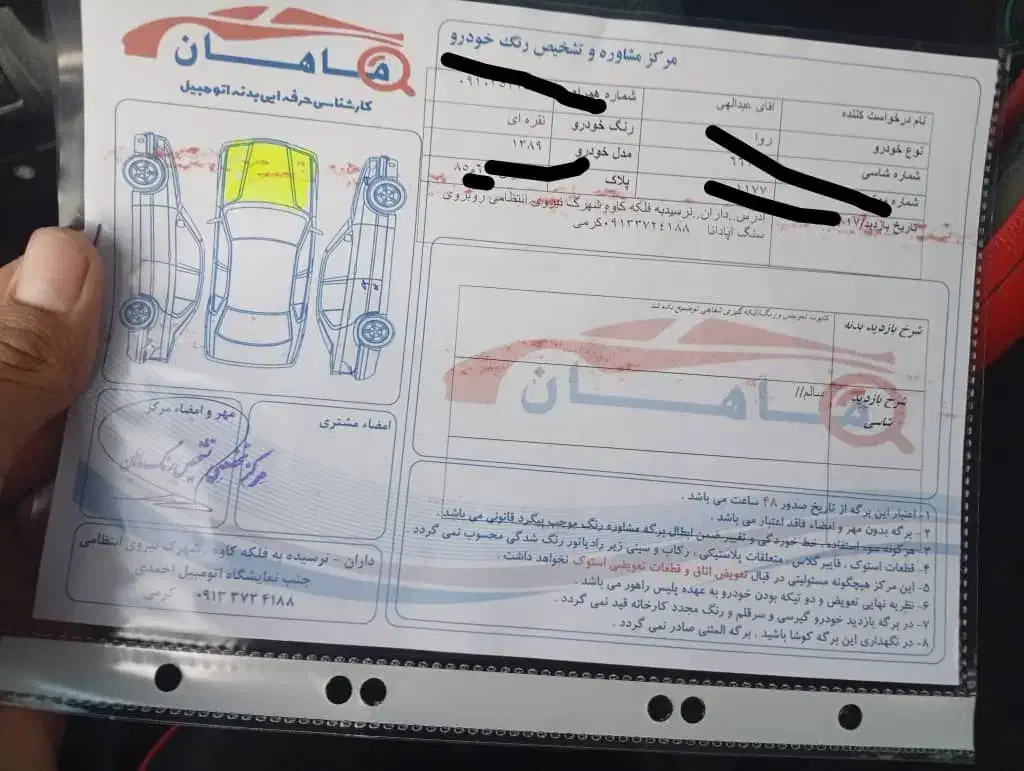 ماهان
کارشناسی حرفه ایی بدنه اتومبیل
مرکز مشاوره و تشخیص رنگ خودرو
نام درخواست کننده اقای عبدالهی شماره همراه
نوع خودرو روا رنگ خودرو نقره ای
شماره شاسی مدل خودرو ۱۳۸۹
شماره پلاک
تاریخ بازدید
ادرس داران نرسیدبه فلکه کاوه شهرک نیروی انتظامی روبروی
سنگ اپادانا ۰۹۱۳۳۷۲۴۱۸۸کرمی
شرح بازدید بدنه کاپوت تعویض و رنگ/لکه گیری شفاهی توضیح داده شد
ماهان
شرح بازدید شاسی سالم//
امضاء مشتری
مهر و امضاء مرکز
مرکز تخصصی تشخیص رنگ
۱- اعتبار این برگه از تاریخ صدور ۴۸ ساعت می باشد .
۲- برگه بدون مهر و امضاء فاقد اعتبار می باشد .
۳- هرگونه سوء استفاده ، خط خوردگی و تغییر ضمن ابطال برگه مشاوره رنگ موجب پیگرد قانونی می باشد .
۴- قطعات استوک ، فایبر گلاس ، متعلقات پلاستیکی ، رکاب و سینی زیر رادیاتور رنگ شدگی محسوب نمی گردد .
۵- این مرکز هیچگونه مسئولیتی در قبال تعویض اتاق و قطعات تعویضی استوک نخواهد داشت .
۶- نظریه نهایی تعویض و دو تیکه بودن خودرو به عهده پلیس راهور می باشد .
۷- در برگه بازدید خودرو گیرسی و سرقلم و رنگ مجدد کارخانه قید نمی گردد .
۸- در نگهداری این برگه کوشا باشید . برگه المثنی صادر نمی گردد .
داران - نرسیده به فلکه کاوه ، شهرک نیروی انتظامی
جنب نمایشگاه اتومبیل احمدی
۰۹۱۳ ۳۷۲ ۴۱۸۸ کرمی